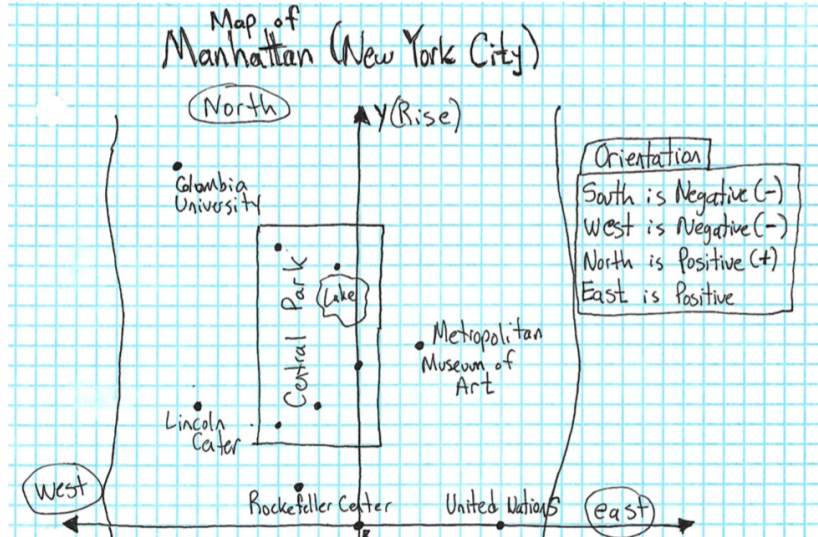 Map of
Manhattan (New York City)
North
Y(Rise)
Orientation
South is Negative (-)
West is Negative (-)
North is Positive (+)
East is Positive
Colombia
University
Central Park
Lake
Metropolitan
Museum of
Art
Lincoln
Cater
West
Rockefeller Center
United Nations
east